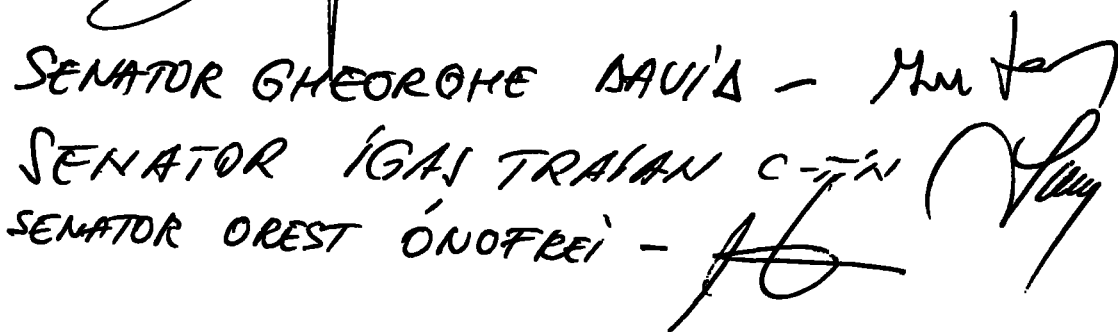 SENATOR GHEORGHE DAVID -
SENATOR IGAS TRAIAN C-TIN
SENATOR OREST ONOFREI -